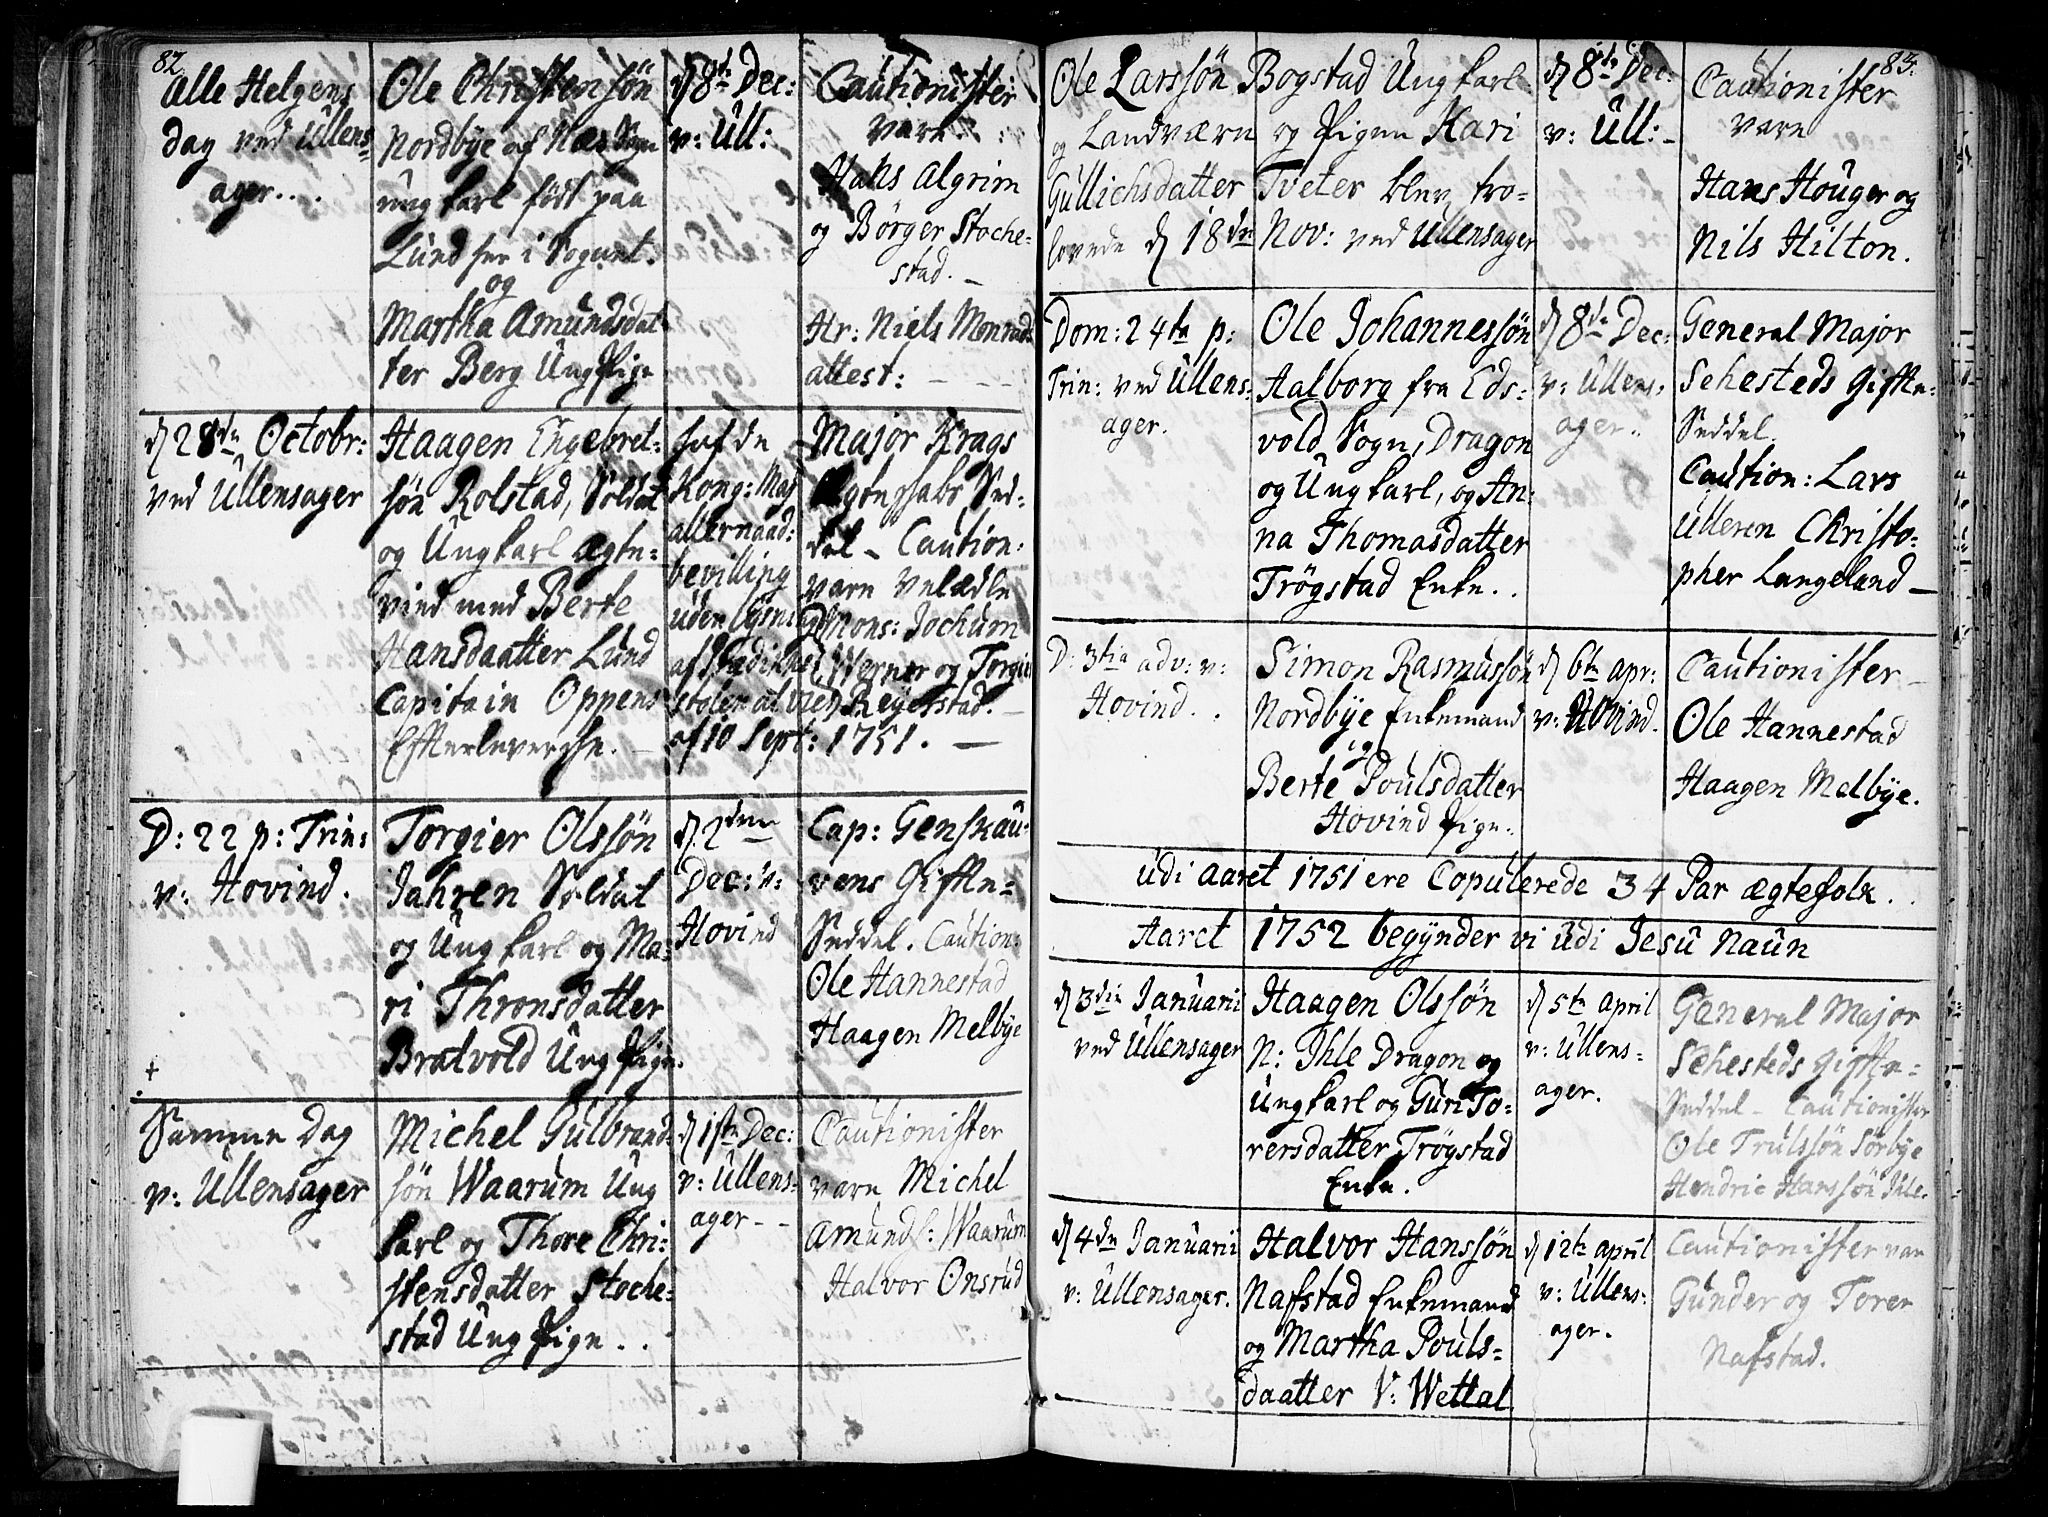 82.
Alle Helgens
dag ved Ullens-
ager...
Ole Christensön
Nordbye af Næs Sogn
ung karl födt paa
Lund her i Sognet.
og
Martha Amundsdat
ter Berg Ung Pige
d 8de Dec:
v: Ull:
Cautionister
vare
Hans Algrim
og Börger Stoche-
stad. –
Hr: Niels Monrads
attest: – – –
d 28de Octobr:
ved Ullensager
Haagen Engebret-
sön Rolstad, Soldat
og Ung karl ægte-
vied med Berte
Hansdaatter Lund
Capitain Oppens
Efterleverske. –
Kong: Maj
allernaad:
bevilling
uden lysning
af 10 Sept: 1751. –
Major Krags
Ægteskabs Sed-
del – Caution:
vare Velædle
Mons: Jochum
Werner og Torgier
Reyerstad. –
D: 22 p: Trin:
v: Hovind.
Torgier Olssön
Jahren Soldat
og Ung karl og Ma-
ri Thronsdatter
Bratvold Ung Pige.
d 2den
Dec: v:
Hovind
Cap: Genskau-
vens Gifte-
Seddel. Caution:
Ole Hannestad
Haagen Melbye
Samme Dag
v: Ullensager
Michel Gulbrand-
sön Waarum Ung
karl og Thore Chri-
stensdatter Stoche-
stad Ung Pige . .
d 1ste Dec:
v: Ullens-
ager - -
Cautionister
vare Michel
Amunds: Waarum
Halvor Onsrud
83.
Ole Larssön Bogstad Ung karl
og Landværn og Pigen Kari
Gullichsdatter Tveter blev tro-
lovede d 18de Nov: ved Ullensager
d 8de Dec:
v: Ull: –
Cautionister
vare
Hans Houger og
Nils Hilton.
Dom: 24ta p:
Trin: ved Ullens-
ager.
Ole Johannessön
Aalborg fra Eds-
vold Sogn, Dragon
og Ung karl, og An-
na Thomasdatter
Trögstad Enke. .
d 8de Dec:
v: Ullens-
ager..
General Major
Sehesteds Gifte-
Seddel.
Caution: Lars
Ulleren Christo-
pher Langeland –
D: 3tia adv: v:
Hovind. .
Simon Rasmussön
Nordbye Enkemand
og
Berte Poulsdatter
Hovind Pige..
d 6te apr:
v: Hovind.
Cautionister –
Ole Hannestad
Haagen Melbye.
udi Aaret 1751 ere Copulerede 34 Par ægtefolk. .
Aaret 1752 begynder vi udi Jesu Naun
d 3die Januarii
ved Ullensager
Haagen Olssön
N: Ihle Dragon og
Ung karl og Guri To-
rersdatter Trögstad
Enke.
d 5te April
v: Ullens-
ager.
General Major
Sehesteds Gifte-
Seddel – Cautionister
Ole Trulssön Sörbye
Hendric Hanssön Ihle.
d 4de Januarii
v: Ullensager.
Halvor Hanssön
Nafstad Enkemand
og Martha Pouls-
daatter V: Wettal
d 12te april
v: Ullens-
ager.
Cautionister var
Gunder og Torer
Nafstad.